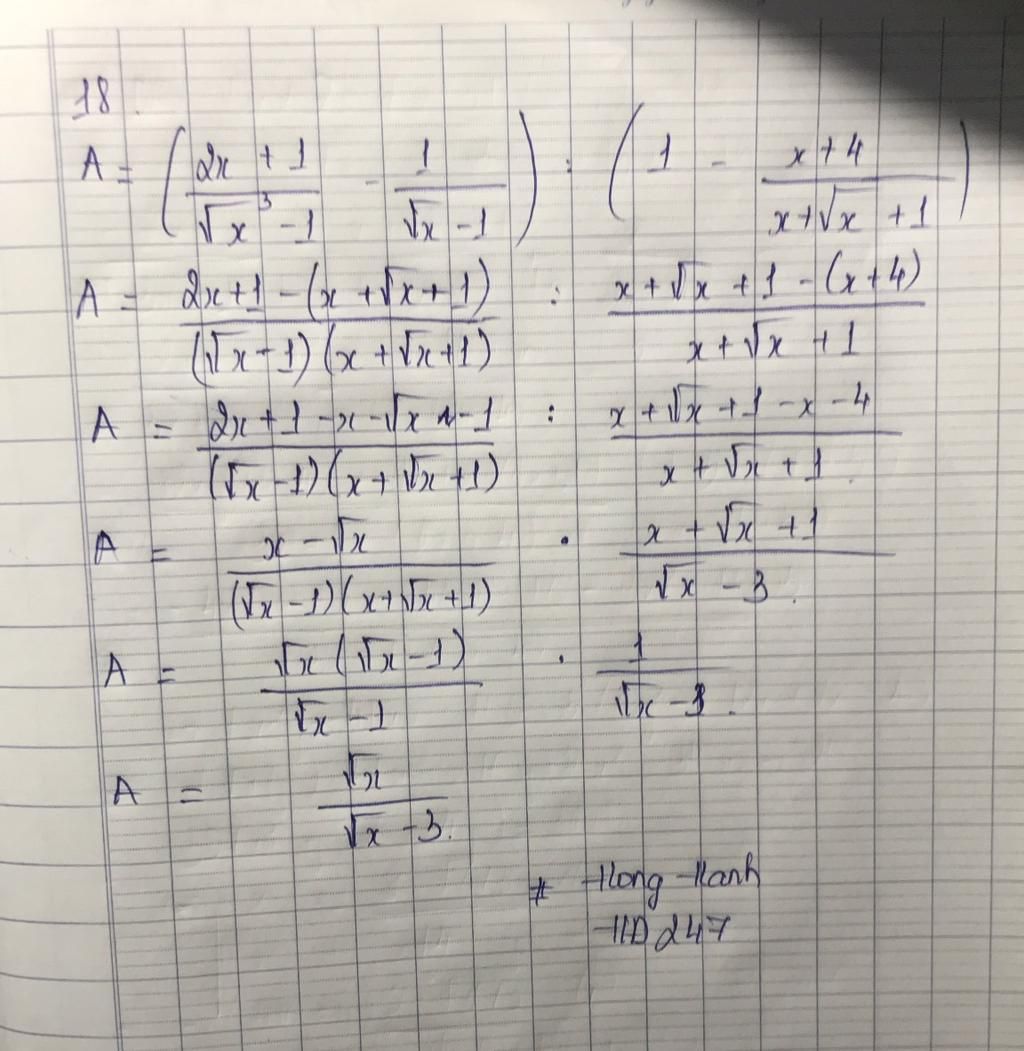 18.
A = ( (2x + 1)/(√x³ - 1) - 1/(√x - 1) ) : ( 1 - (x + 4)/(x + √x + 1) )
A = (2x + 1 - (x + √x + 1))/((√x - 1)(x + √x + 1)) : (x + √x + 1 - (x + 4))/(x + √x + 1)
A = (2x + 1 - x - √x - 1)/((√x - 1)(x + √x + 1)) : (x + √x + 1 - x - 4)/(x + √x + 1)
A = (x - √x)/((√x - 1)(x + √x + 1)) . (x + √x + 1)/(√x - 3).
A = (√x(√x - 1))/(√x - 1) . 1/(√x - 3).
A = √x/(√x - 3).
# Hong Hanh
HD 247